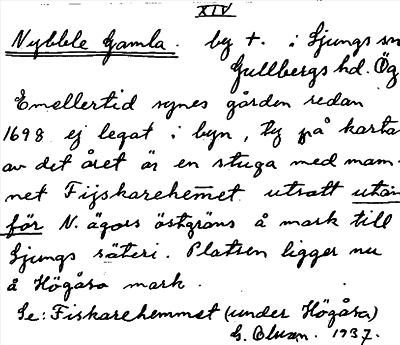 XIV
Nybble Gamla. by +. i Ljungs sn
Gullbergs hd. Ög
Emellertid synes gården redan
1698 ej legat i byn, ty på karta
av det året är en stuga med nam-
net Fijskarehemet utsatt utan-
för N. ägors östgräns å mark till
Ljungs säteri. Platsen ligger nu
å Högåsa mark.
Se: Fiskarehemmet (under Högåsa)
G. 1937.